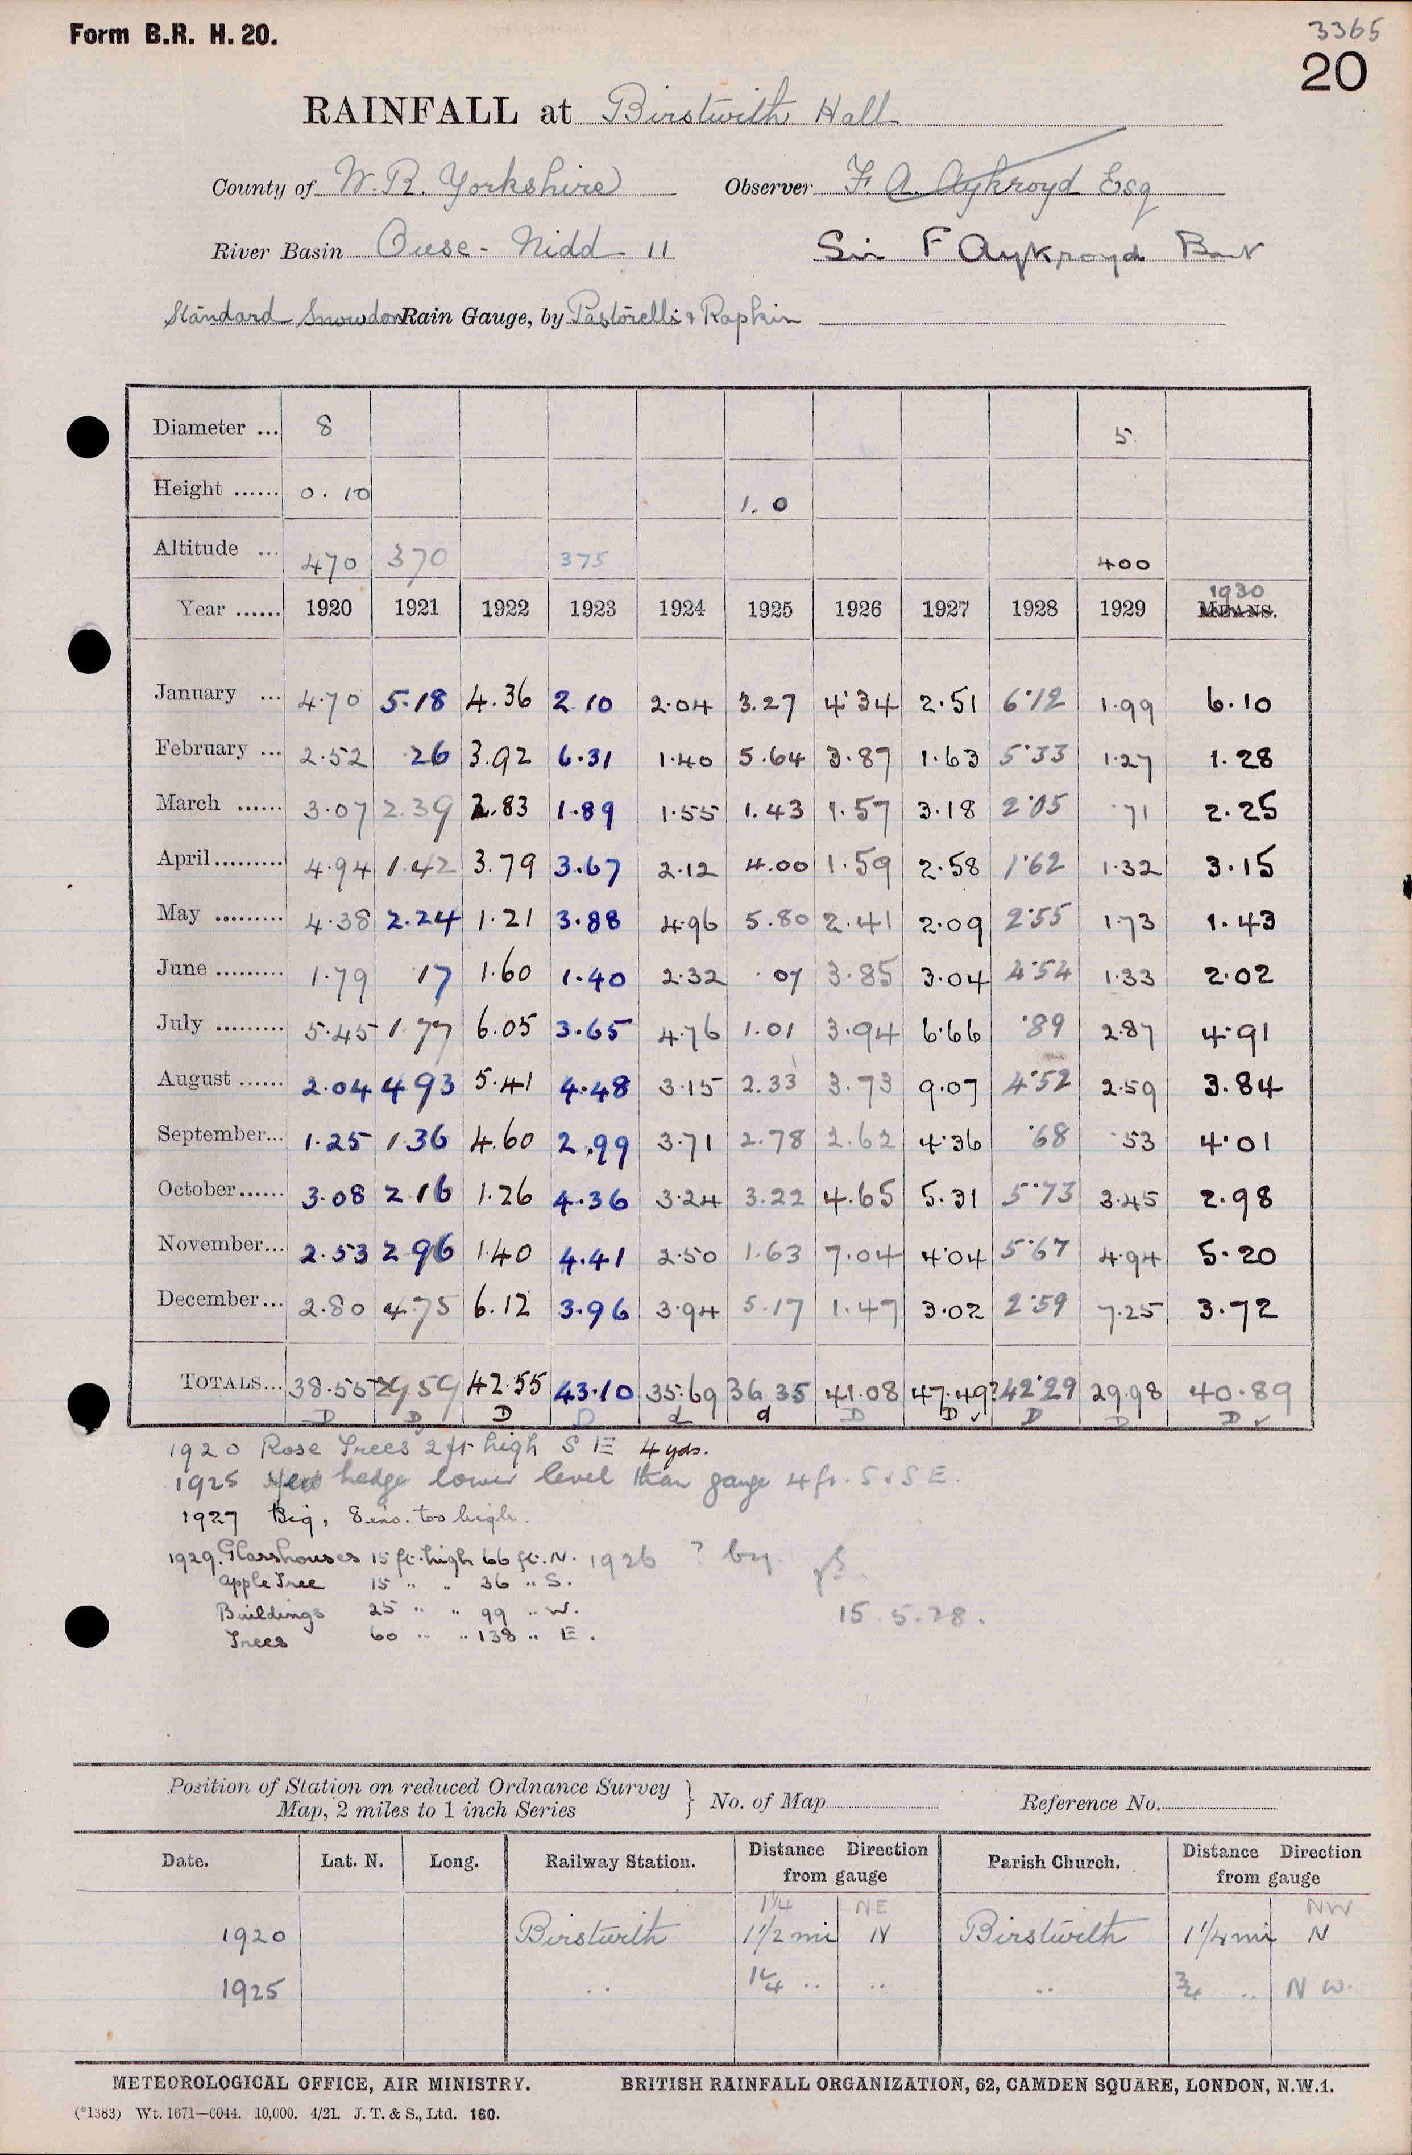 Form B.R. H. 20.
3365
20
RAINFALL at Birstwith Hall
County of W. R. Yorkshire Observer F. A. Aykroyd Esq
River Basin Ouse - Nidd 11 Sir F Aykroyd Bart
Standard Snowdon Rain Gauge, by Pastorelli & Rapkin
Diameter ... 8 5
Height ...... 0. 10 1. 0
Altitude ... 470 370 375 400
Year ...... 1920 1921 1922 1923 1924 1925 1926 1927 1928 1929 1930 MEANS.
January ... 4.70 5.18 4.36 2.10 2.04 3.27 4.34 2.51 6.12 1.99 6.10
February ... 2.52 .26 3.92 6.31 1.40 5.64 3.87 1.63 5.33 1.27 1.28
March ...... 3.07 2.39 2.83 1.89 1.55 1.43 1.57 3.18 2.05 .71 2.25
April......... 4.94 1.42 3.79 3.67 2.12 4.00 1.59 2.58 1.62 1.32 3.15
May ......... 4.38 2.24 1.21 3.88 4.96 5.80 2.41 2.09 2.55 1.73 1.43
June ......... 1.79 .17 1.60 1.40 2.32 .07 3.85 3.04 4.54 1.33 2.02
July ......... 5.45 1.77 6.05 3.65 4.76 1.01 3.94 6.66 .89 2.87 4.91
August ...... 2.04 4.93 5.41 4.48 3.15 2.33 3.73 9.07 4.52 2.59 3.84
September... 1.25 1.36 4.60 2.99 3.71 2.78 2.62 4.36 .68 .53 4.01
October...... 3.08 2.16 1.26 4.36 3.24 3.22 4.65 5.31 5.73 3.45 2.98
November... 2.53 2.96 1.40 4.41 2.50 1.63 7.04 4.04 5.67 4.94 5.20
December... 2.80 4.75 6.12 3.96 3.94 5.17 1.47 3.02 2.59 7.25 3.72
TOTALS... 38.55 29.59 42.55 43.10 35.69 36.35 41.08 47.49? 42.29 29.98 40.89
D D D D d d D D ✓ D D D ✓
1920 Rose Trees 2 ft high S E 4 yds.
1925 Yew hedge lower level than gauge 4 ft. S & S E.
1927 Big, 8 ins. too high.
1929. Glasshouses 15 ft. high 66 ft. N. 1926 ? by
Apple Tree 15 " " 36 " S.
Buildings 25 " " 99 " W. 15.5.28.
Trees 60 " " 138 " E.
Position of Station on reduced Ordnance Survey
Map, 2 miles to 1 inch Series } No. of Map Reference No.
Date. Lat. N. Long. Railway Station. Distance Direction from gauge Parish Church. Distance Direction from gauge
1¼ NE NW
1920 Birstwith 1½ mi N Birstwith 1¼ mi N
1925 " 1¼ " " " ¾ " N W.
METEOROLOGICAL OFFICE, AIR MINISTRY. BRITISH RAINFALL ORGANIZATION, 62, CAMDEN SQUARE, LONDON, N.W.1.
(*1383) Wt. 1671—C044. 10,000. 4/21. J. T. & S., Ltd. 160.